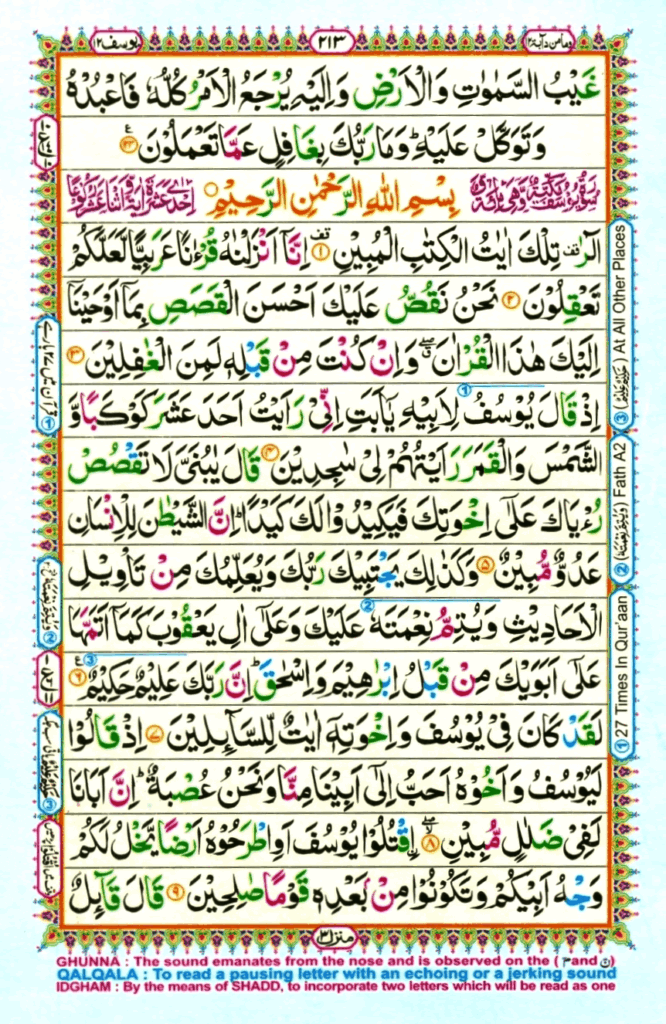 وما من دآبة ۱۲
۲۱۳
يوسف ۱۲
غَيْبُ السَّمٰوٰتِ وَالْاَرْضِ وَاِلَيْهِ يُرْجَعُ الْاَمْرُ كُلُّهٗ فَاعْبُدْهُ
وَتَوَكَّلْ عَلَيْهِ ؕ وَمَا رَبُّكَ بِغَافِلٍ عَمَّا تَعْمَلُوْنَ ۝۱۲۳
بِسْمِ اللّٰهِ الرَّحْمٰنِ الرَّحِيْمِ
الٓرٰ ࣞ تِلْكَ اٰيٰتُ الْكِتٰبِ الْمُبِيْنِ ۝۱ اِنَّاۤ اَنْزَلْنٰهُ قُرْءٰنًا عَرَبِيًّا لَّعَلَّكُمْ
تَعْقِلُوْنَ ۝۲ نَحْنُ نَقُصُّ عَلَيْكَ اَحْسَنَ الْقَصَصِ بِمَاۤ اَوْحَيْنَاۤ
اِلَيْكَ هٰذَا الْقُرْاٰنَ ۖ وَاِنْ كُنْتَ مِنْ قَبْلِهٖ لَمِنَ الْغٰفِلِيْنَ ۝۳
اِذْ قَالَ يُوْسُفُ لِاَبِيْهِ يٰۤاَبَتِ اِنِّيْ رَاَيْتُ اَحَدَ عَشَرَ كَوْكَبًا وَّ
الشَّمْسَ وَالْقَمَرَ رَاَيْتُهُمْ لِيْ سٰجِدِيْنَ ۝۴ قَالَ يٰبُنَيَّ لَا تَقْصُصْ
رُءْيَاكَ عَلٰۤى اِخْوَتِكَ فَيَكِيْدُوْا لَكَ كَيْدًا ؕ اِنَّ الشَّيْطٰنَ لِلْاِنْسَانِ
عَدُوٌّ مُّبِيْنٌ ۝۵ وَكَذٰلِكَ يَجْتَبِيْكَ رَبُّكَ وَيُعَلِّمُكَ مِنْ تَاْوِيْلِ
الْاَحَادِيْثِ وَيُتِمُّ نِعْمَتَهٗ عَلَيْكَ وَعَلٰۤى اٰلِ يَعْقُوْبَ كَمَاۤ اَتَمَّهَا
عَلٰۤى اَبَوَيْكَ مِنْ قَبْلُ اِبْرٰهِيْمَ وَاِسْحٰقَ ؕ اِنَّ رَبَّكَ عَلِيْمٌ حَكِيْمٌ ۝۶
لَقَدْ كَانَ فِيْ يُوْسُفَ وَاِخْوَتِهٖۤ اٰيٰتٌ لِّلسَّآىِٕلِيْنَ ۝۷ اِذْ قَالُوْا
لَيُوْسُفُ وَاَخُوْهُ اَحَبُّ اِلٰۤى اَبِيْنَا مِنَّا وَنَحْنُ عُصْبَةٌ ؕ اِنَّ اَبَانَا
لَفِيْ ضَلٰلٍ مُّبِيْنِ ۝۸ اقْتُلُوْا يُوْسُفَ اَوِ اطْرَحُوْهُ اَرْضًا يَّخْلُ لَكُمْ
وَجْهُ اَبِيْكُمْ وَتَكُوْنُوْا مِنْ بَعْدِهٖ قَوْمًا صٰلِحِيْنَ ۝۹ قَالَ قَآىِٕلٌ
منزل ۳
③ At All Other Places
② Fath A2
① 27 Times In Qur'aan
GHUNNA : The sound emanates from the nose and is observed on the ( م and ن )
QALQALA : To read a pausing letter with an echoing or a jerking sound
IDGHAM : By the means of SHADD, to incorporate two letters which will be read as one